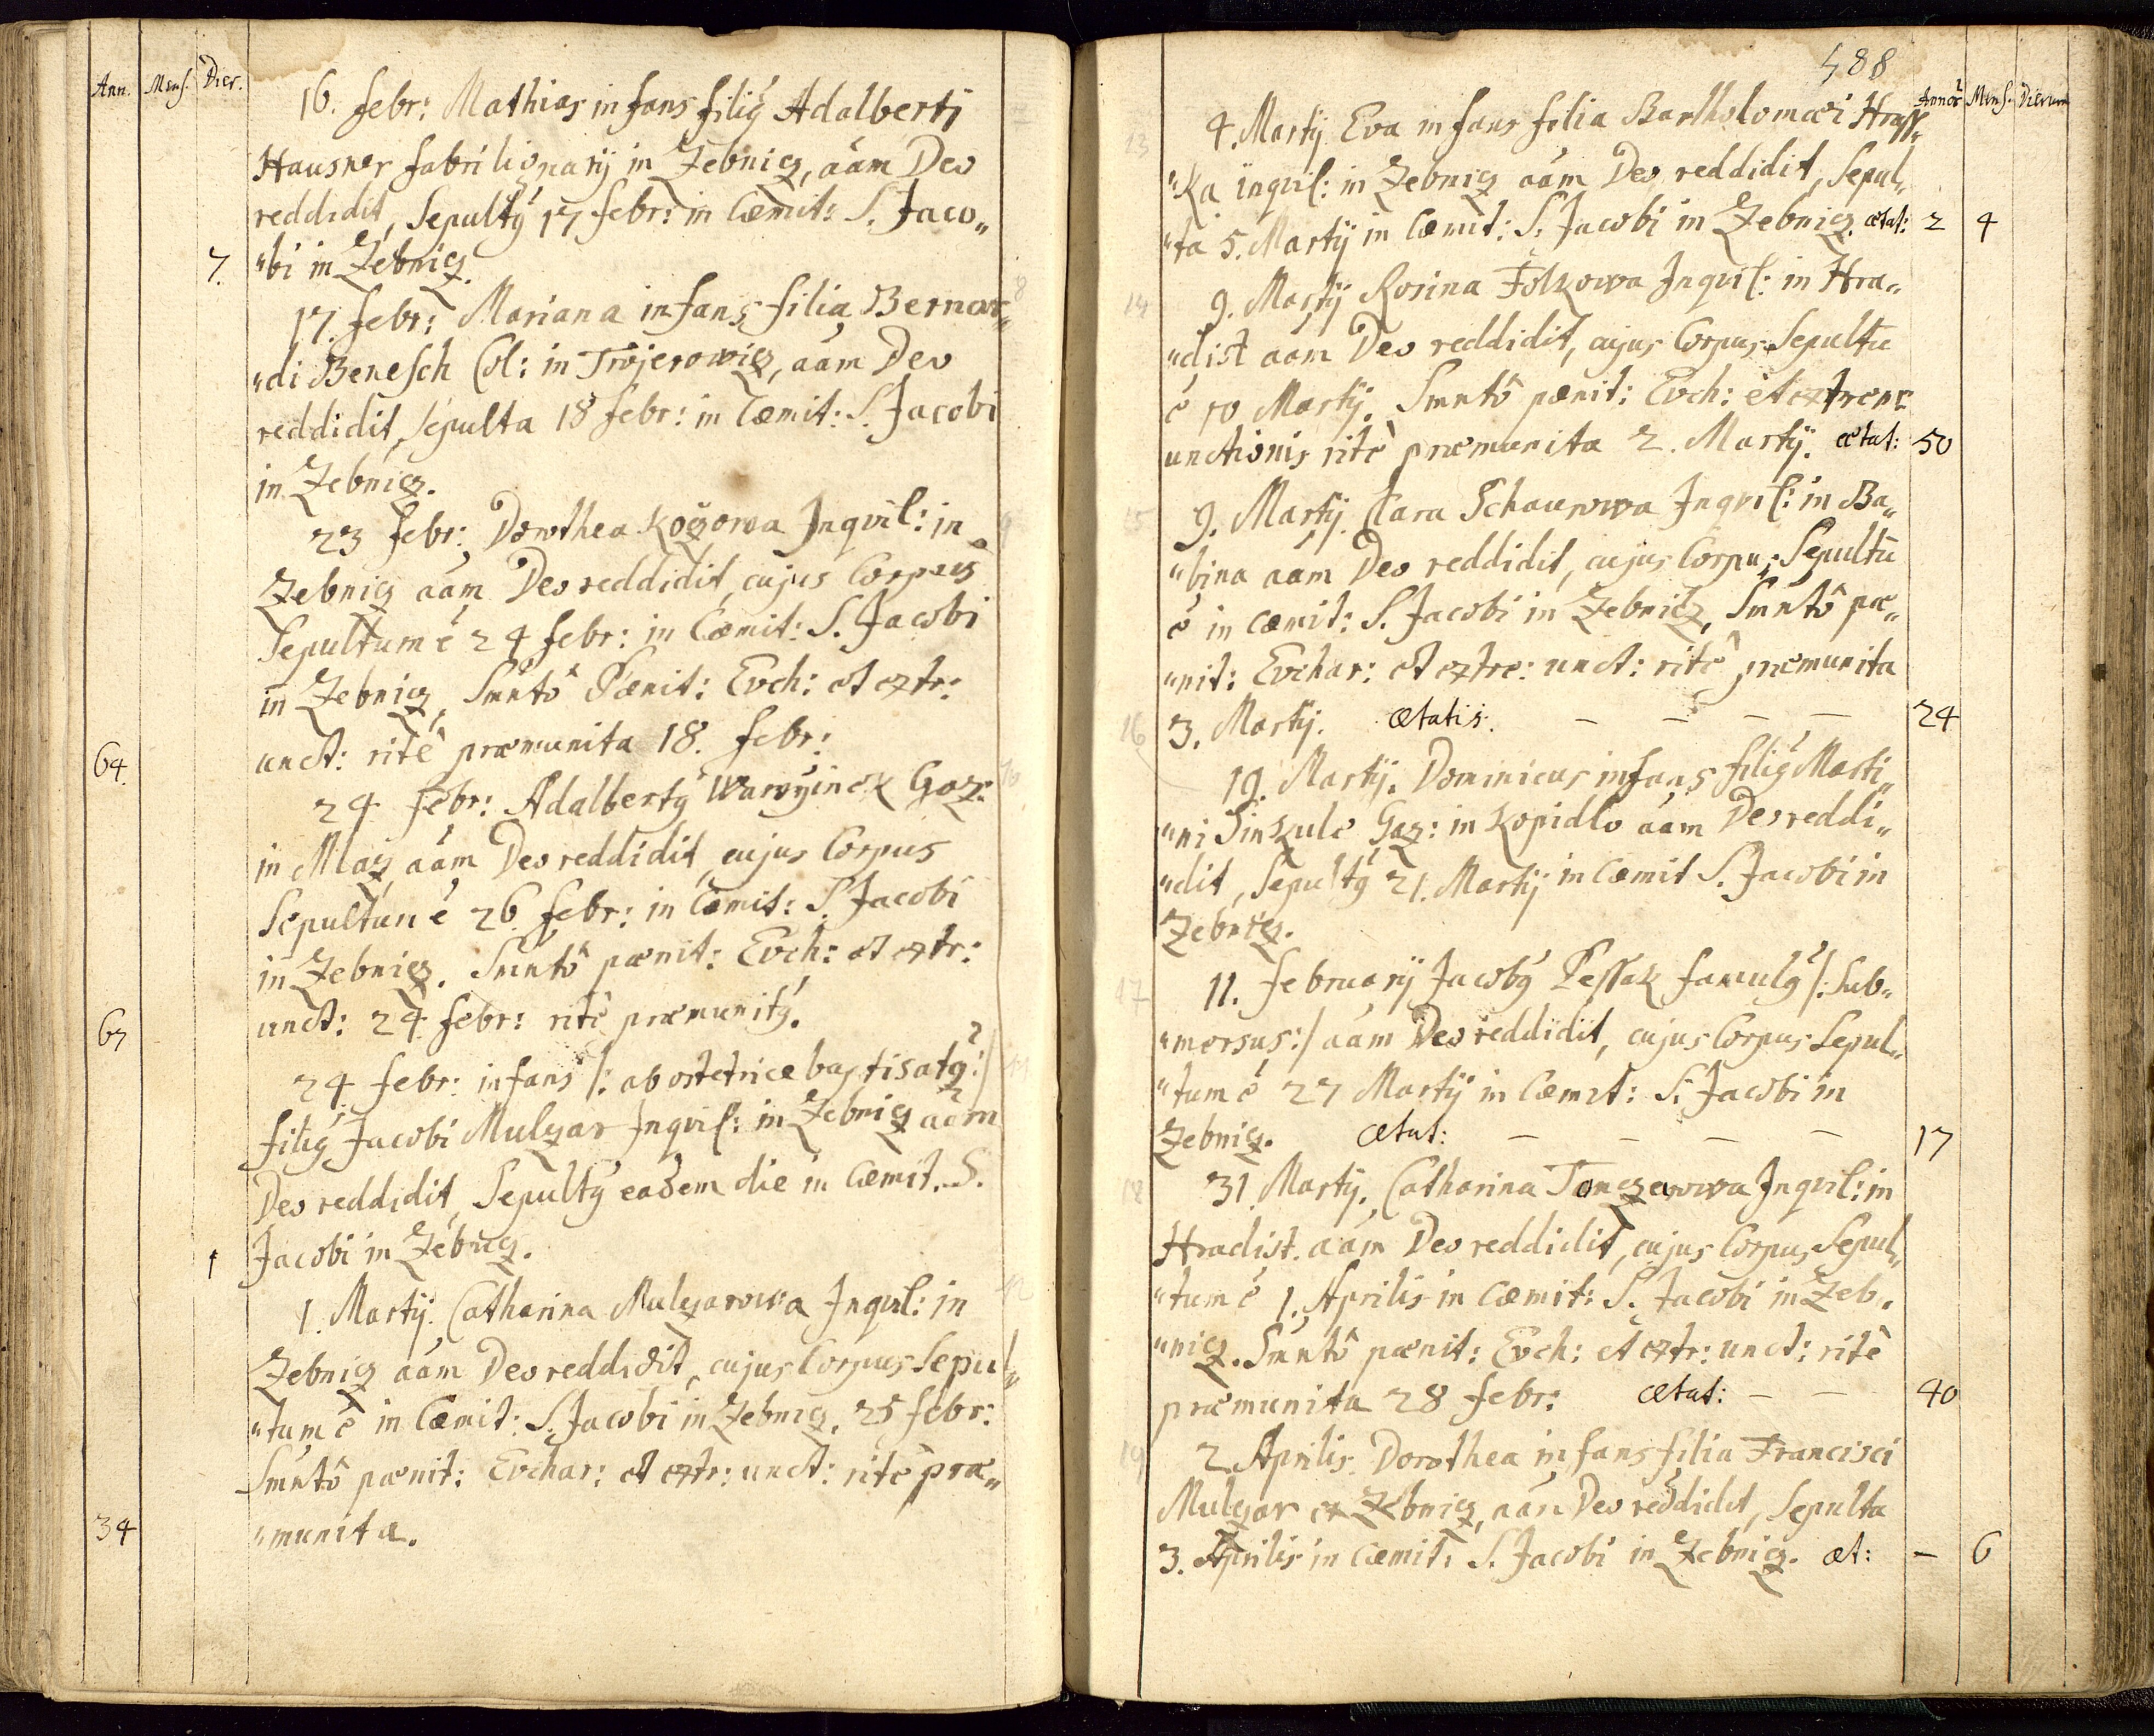 Ann. Mens. Dier.
16. febr: Mathias infans filiꝰ Adalberti
Hausner fabri lignarij in Zebnicz, aâm Deo
reddidit, Sepultꝰ 17 febr: in Cæmit: S. Jaco„
7. „bi in Zebnicz.
17. febr: Mariana infans filia Bernar„
„di Benesch Col: in Trojerowicz, aâm Deo
reddidit, Sepulta 18 febr: in Cæmit: S. Jacobi
in Zebnicz.
23 febr: Dorothea Koczowa Inqvil: in
Zebnicz aâm Deo reddidit, cujus Corpus
Sepultum ē 24 febr: in Cæmit: S. Jacobi
in Zebnicz, Smntô Pænit: Evch: et extr:
64. unct: ritè præmunita 18. febr:
24 febr: Adalbertꝰ Gaz:
in Mlaz, aâm Deo reddidit, cujus Corpus
Sepultum ē 26 febr: in Cæmit: S. Jacobi
in Zebnicz. Smntô pænit: Evch: et extr:
67 unct: 24 febr: ritè præmunitꝰ.
24 febr: infans /: ab ostetrice baptisatꝰ :/
filiꝰ Jacobi Mulczar Inqvil: in Zebnicz aâm
Deo reddidit, Sepultꝰ eadem die in Cæmit. S.
1 Jacobi in Zebnicz.
1. Martij. Catharina Mulczarowa Inqvil: in
Zebnicz aâm Deo reddidit, cujus Corpus Sepul„
„tum ē in Cæmit: S. Jacobi in Zebnicz. 25 febr:
Smntô pænit: Evchar: et extr: unct: ritè præ„
34 „munita.
488
Annor Mens. Dierum
13 4. Martij Eva infans filia Bartholomæi Hrass„
„ka inqvil: in Zebnicz aâm Deo reddidit, Sepul„
„ta 5. Martij in Cæmit: S. Jacobi in Zebnicz. ætat: 2 4
14 9. Martij Rosina Folkowa Inqvil: in Hra„
„dist aâm Deo reddidit, cujus Corpus Sepultū
ē 10 Martij. Smntô pænit: Evch: et extrem:
unctionis ritè præmunita 2. Martij. ætat: 50
15 9. Martij Clara Schaurowa Inqvil: in Ba„
„bina aâm Deo reddidit, cujus Corpus Sepultū
ē in cæmit: S. Jacobi in Zebnicz, Smntô pæ„
„nit: Evchar: et extre: unct: ritè præmunita
3. Martij. ætatis. — — — — 24
16 19. Martij. Dominicus infans filiꝰ Marti„
„ni Sinkule Gaz: in Kopidlo aâm Deo reddi„
„dit, Sepultꝰ 21. Martij in Cæmit S. Jacobi in
Zebnicz.
17 11. februarij Jacobꝰ Pessak famulꝰ /: Sub„
„mersus :/ aâm Deo reddidit, cujus Corpus Sepul„
„tum ē 27 Martij in Cæmit: S. Jacobi in
Zebnicz. ætat: — — — — 17
18 31. Martij. Catharina Tonczarowa Inqvil: in
Hradist. aâm Deo reddidit, cujus Corpus Sepul„
„tum ē 1. Aprilis in Cæmit: S. Jacobi in Zeb„
„nicz. Smntô pænit: Evch: et extr: unct: ritè
præmunita 28 febr: ætat: — — 40
19 2. Aprilis. Dorothea infans filia Francisci
Mulczar ex Zebnicz, aâm Deo reddidit, Sepulta
3. Aprilis in Cæmit: S. Jacobi in Zebnicz. æt: — 6